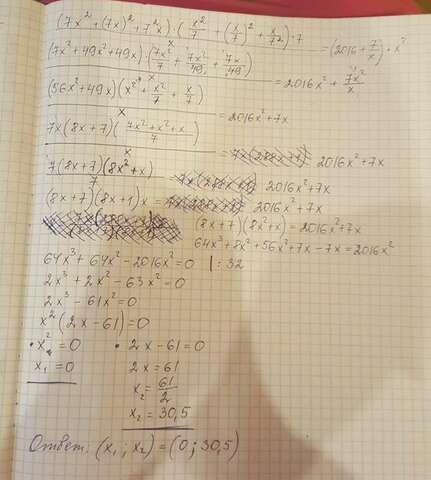 (7x² + (7x)² + 7²x) · (x²/7 + (x/7)² + x/7²) · 7 / x = (2016 + 7/x) · x²
(7x² + 49x² + 49x) · (7x²/7 + 7x²/49 + 7x/49) / x = 2016x² + 7x²/x
(56x² + 49x)(x² + x²/7 + x/7) / x = 2016x² + 7x
7x(8x+7)(7x² + x² + x / 7) / x = 2016x² + 7x
7(8x+7)(8x² + x) / 7 = 2016x² + 7x
(8x+7)(8x+1)x = 2016x² + 7x
(8x+7)(8x²+x) = 2016x² + 7x
64x³ + 8x² + 56x² + 7x - 7x = 2016x²
64x³ + 64x² - 2016x² = 0 | : 32
2x³ + 2x² - 63x² = 0
2x³ - 61x² = 0
x²(2x - 61) = 0
• x² = 0 • 2x - 61 = 0
x₁ = 0 2x = 61
x₂ = 61/2
x₂ = 30,5
Ответ: (x₁ ; x₂) = (0 ; 30,5)